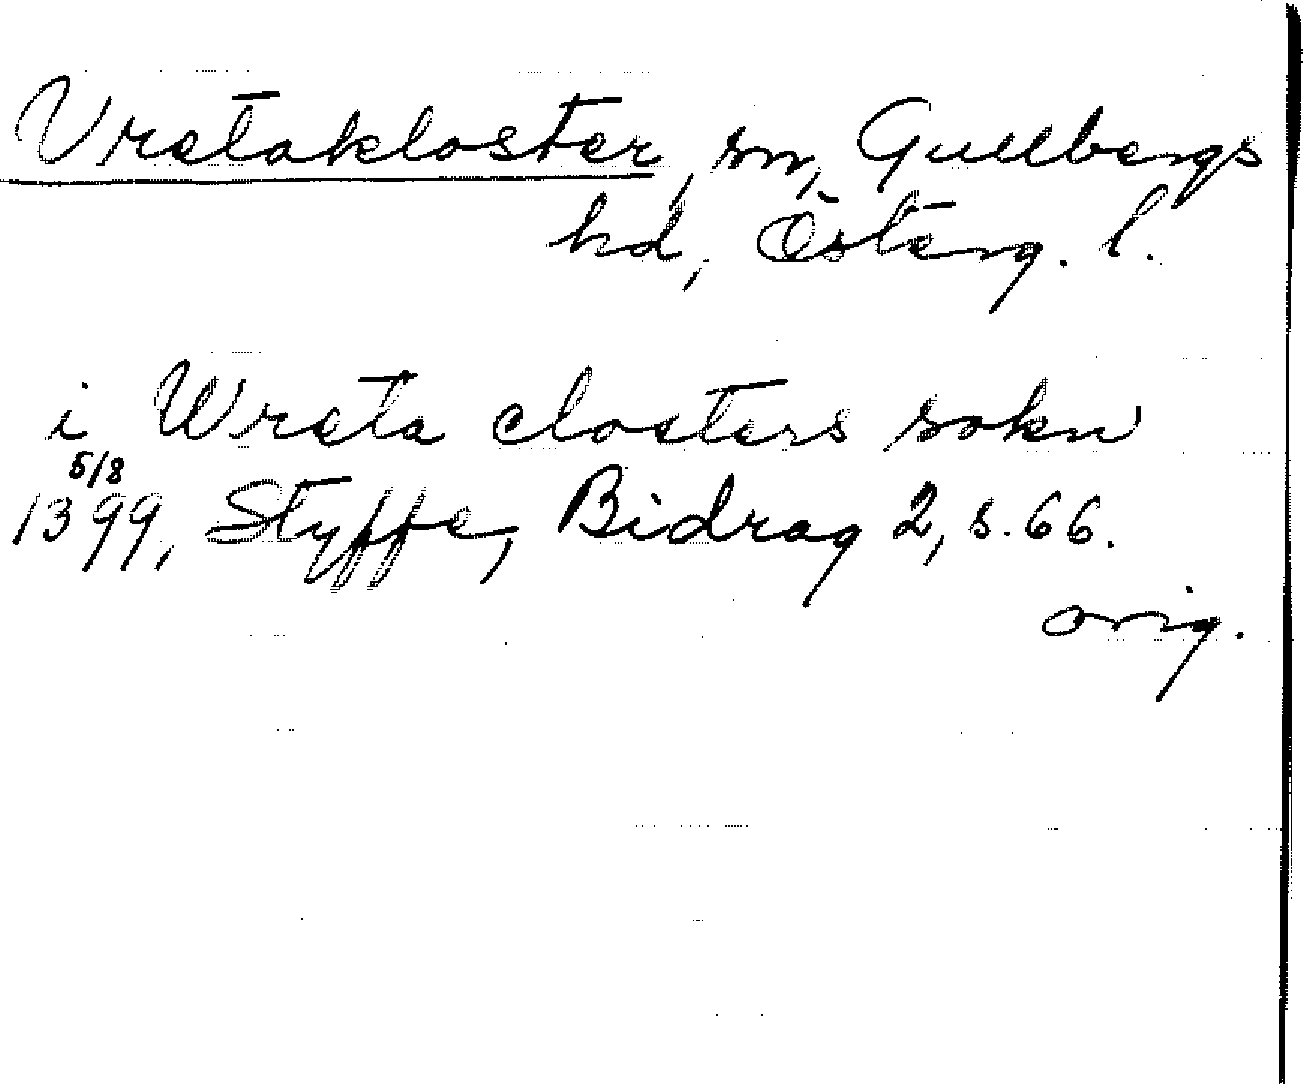 Vretakloster, sn, Gullbergs
hd, Österg. l.
i Wreta closters sokn
5/8
1399, Styffe, Bidrag 2, s. 66.
orig.